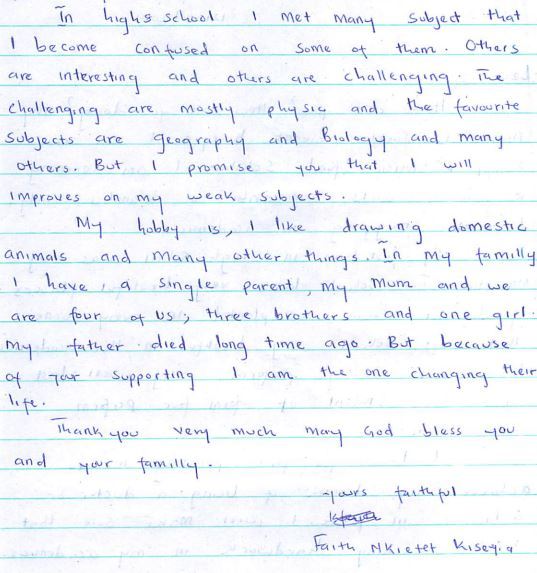 In highs school I met many subject that
I become confused on some of them. Others
are interesting and others are challenging. The
challenging are mostly physic and the favourite
subjects are geography and Biology and many
others. But I promise you that I will
improves on my weak subjects.
My hobby is, I like drawing domestic
animals and many other things. In my familly
I have, a single parent, my mum and we
are four of us; three brothers and one girl.
My father died long time ago. But because
of your supporting I am the one changing their
life.
Thank you very much may God bless you
and your familly.
yours faithful
Faith Nkietet Kiseyia